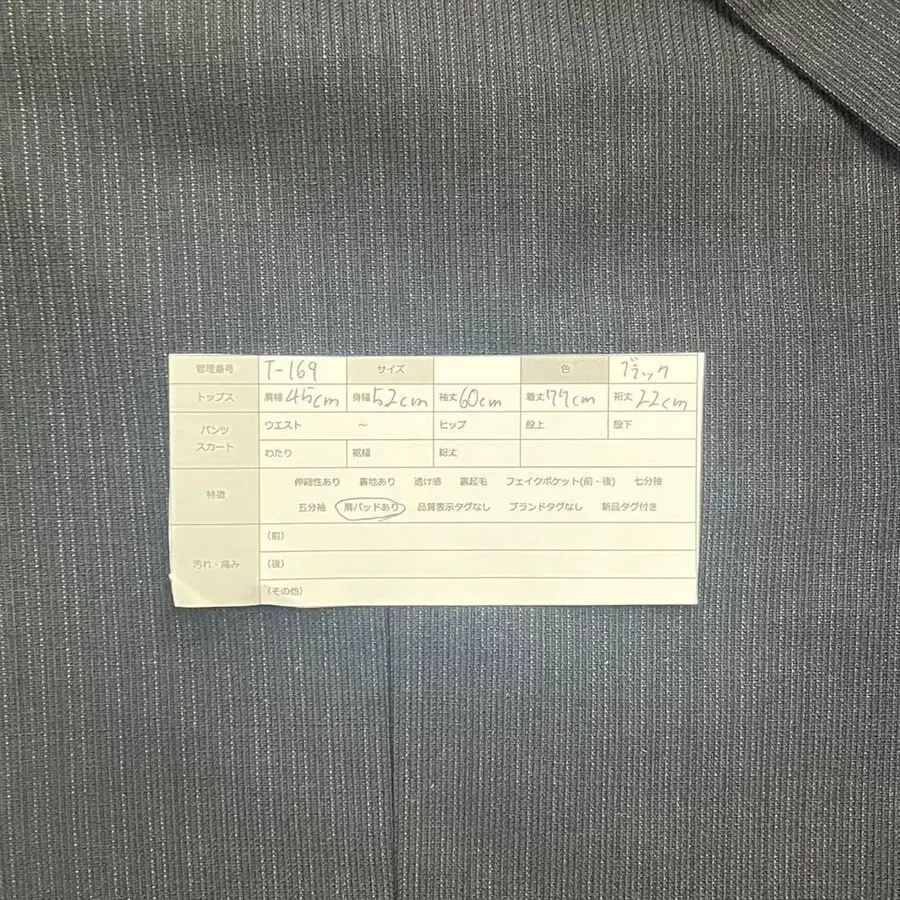 管理番号 T-169 サイズ 色 ブラック
トップス 肩幅 45cm 身幅 52cm 袖丈 60cm 着丈 77cm 裄丈 22cm
パンツ スカート ウエスト ～ ヒップ 股上 股下
わたり 裾幅 総丈
特徴 伸縮性あり 裏地あり 透け感 裏起毛 フェイクポケット(前・後) 七分袖
五分袖 肩パッドあり 品質表示タグなし ブランドタグなし 新品タグ付き
汚れ・痛み (前)
(後)
(その他)